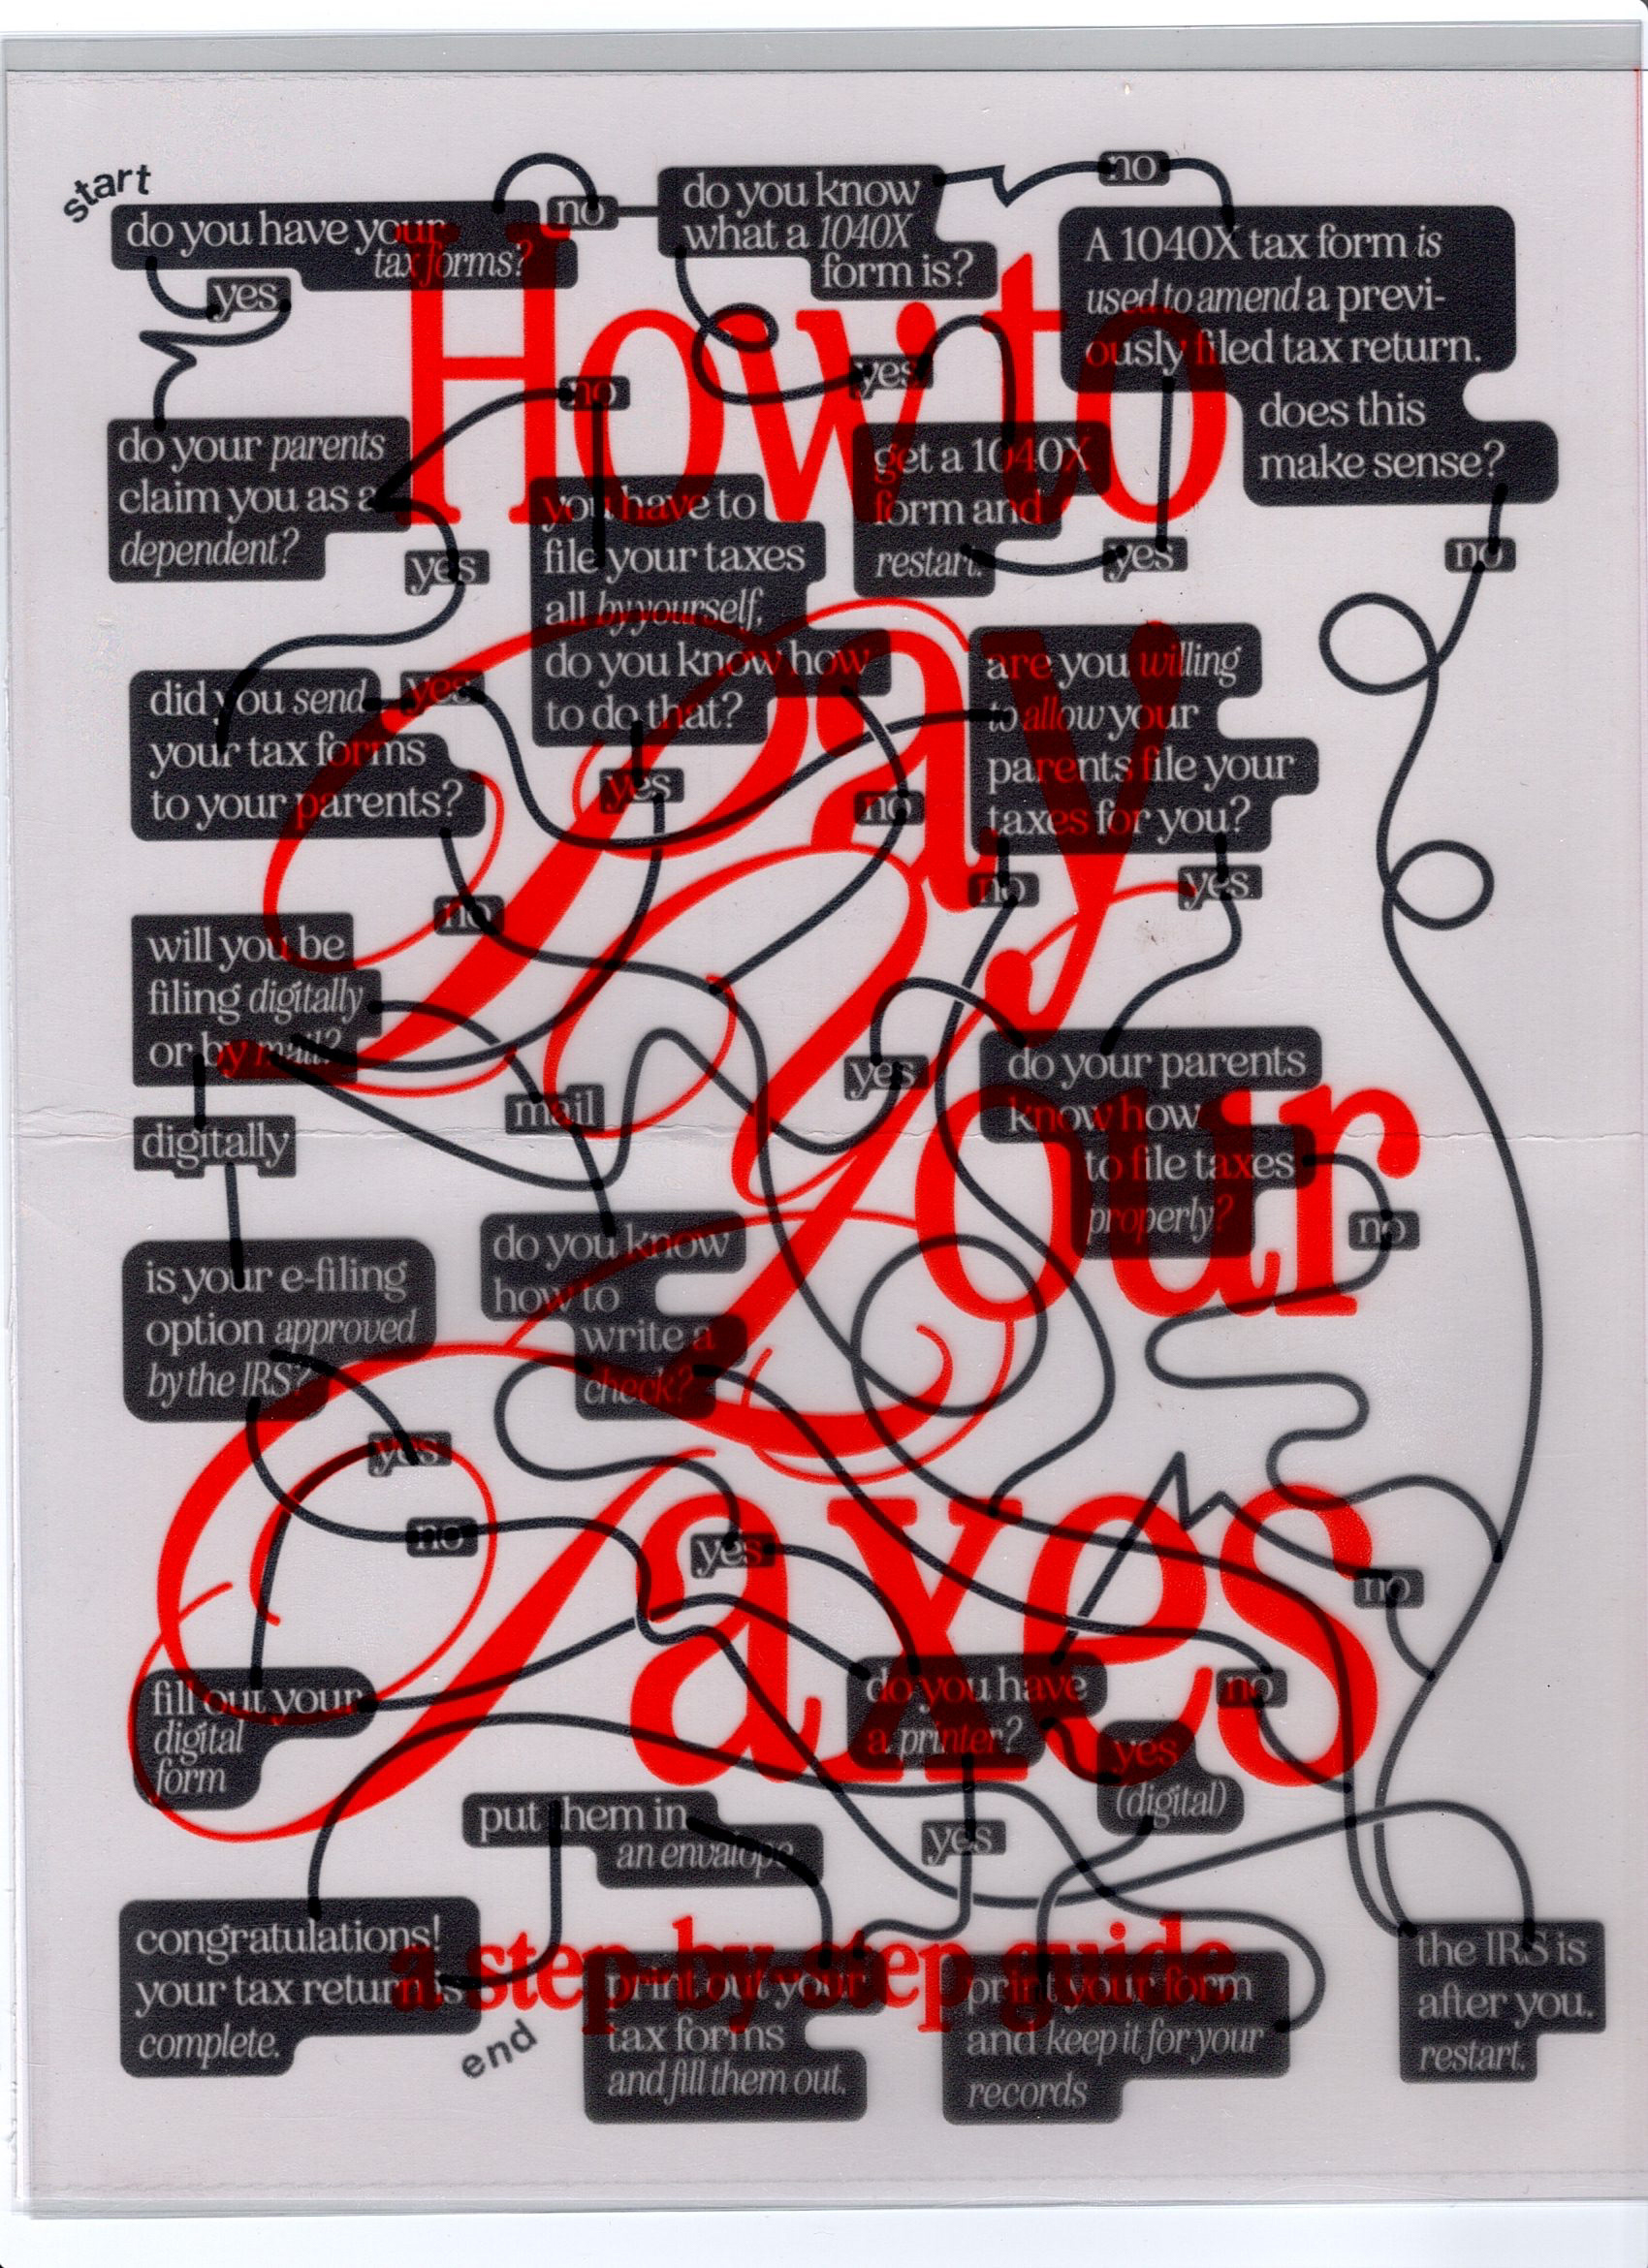 How to
Pay
Your
Taxes
a step-by-step guide
start
do you have your
tax forms?
no
yes
do you know
what a 1040X
form is?
no
A 1040X tax form is
used to amend a previ-
ously filed tax return.
does this
make sense?
yes
get a 1040X
form and
restart.
yes
no
do your parents
claim you as a
dependent?
no
yes
you have to
file your taxes
all by yourself,
do you know how
to do that?
yes
no
did you send
your tax forms
to your parents?
yes
no
are you willing
to allow your
parents file your
taxes for you?
no
yes
will you be
filing digitally
or by mail?
mail
digitally
do your parents
know how
to file taxes
properly?
yes
no
is your e-filing
option approved
by the IRS?
yes
no
do you know
how to
write a
check?
yes
no
fill out your
digital
form
do you have
a printer?
no
yes
(digital)
yes
put them in
an envalope
congratulations!
your tax return is
complete.
end
print out your
tax forms
and fill them out.
print your form
and keep it for your
records
the IRS is
after you.
restart.